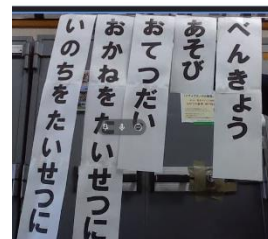 べんきょう
あそび
おてつだい
おかねをたいせつに
いのちをたいせつに